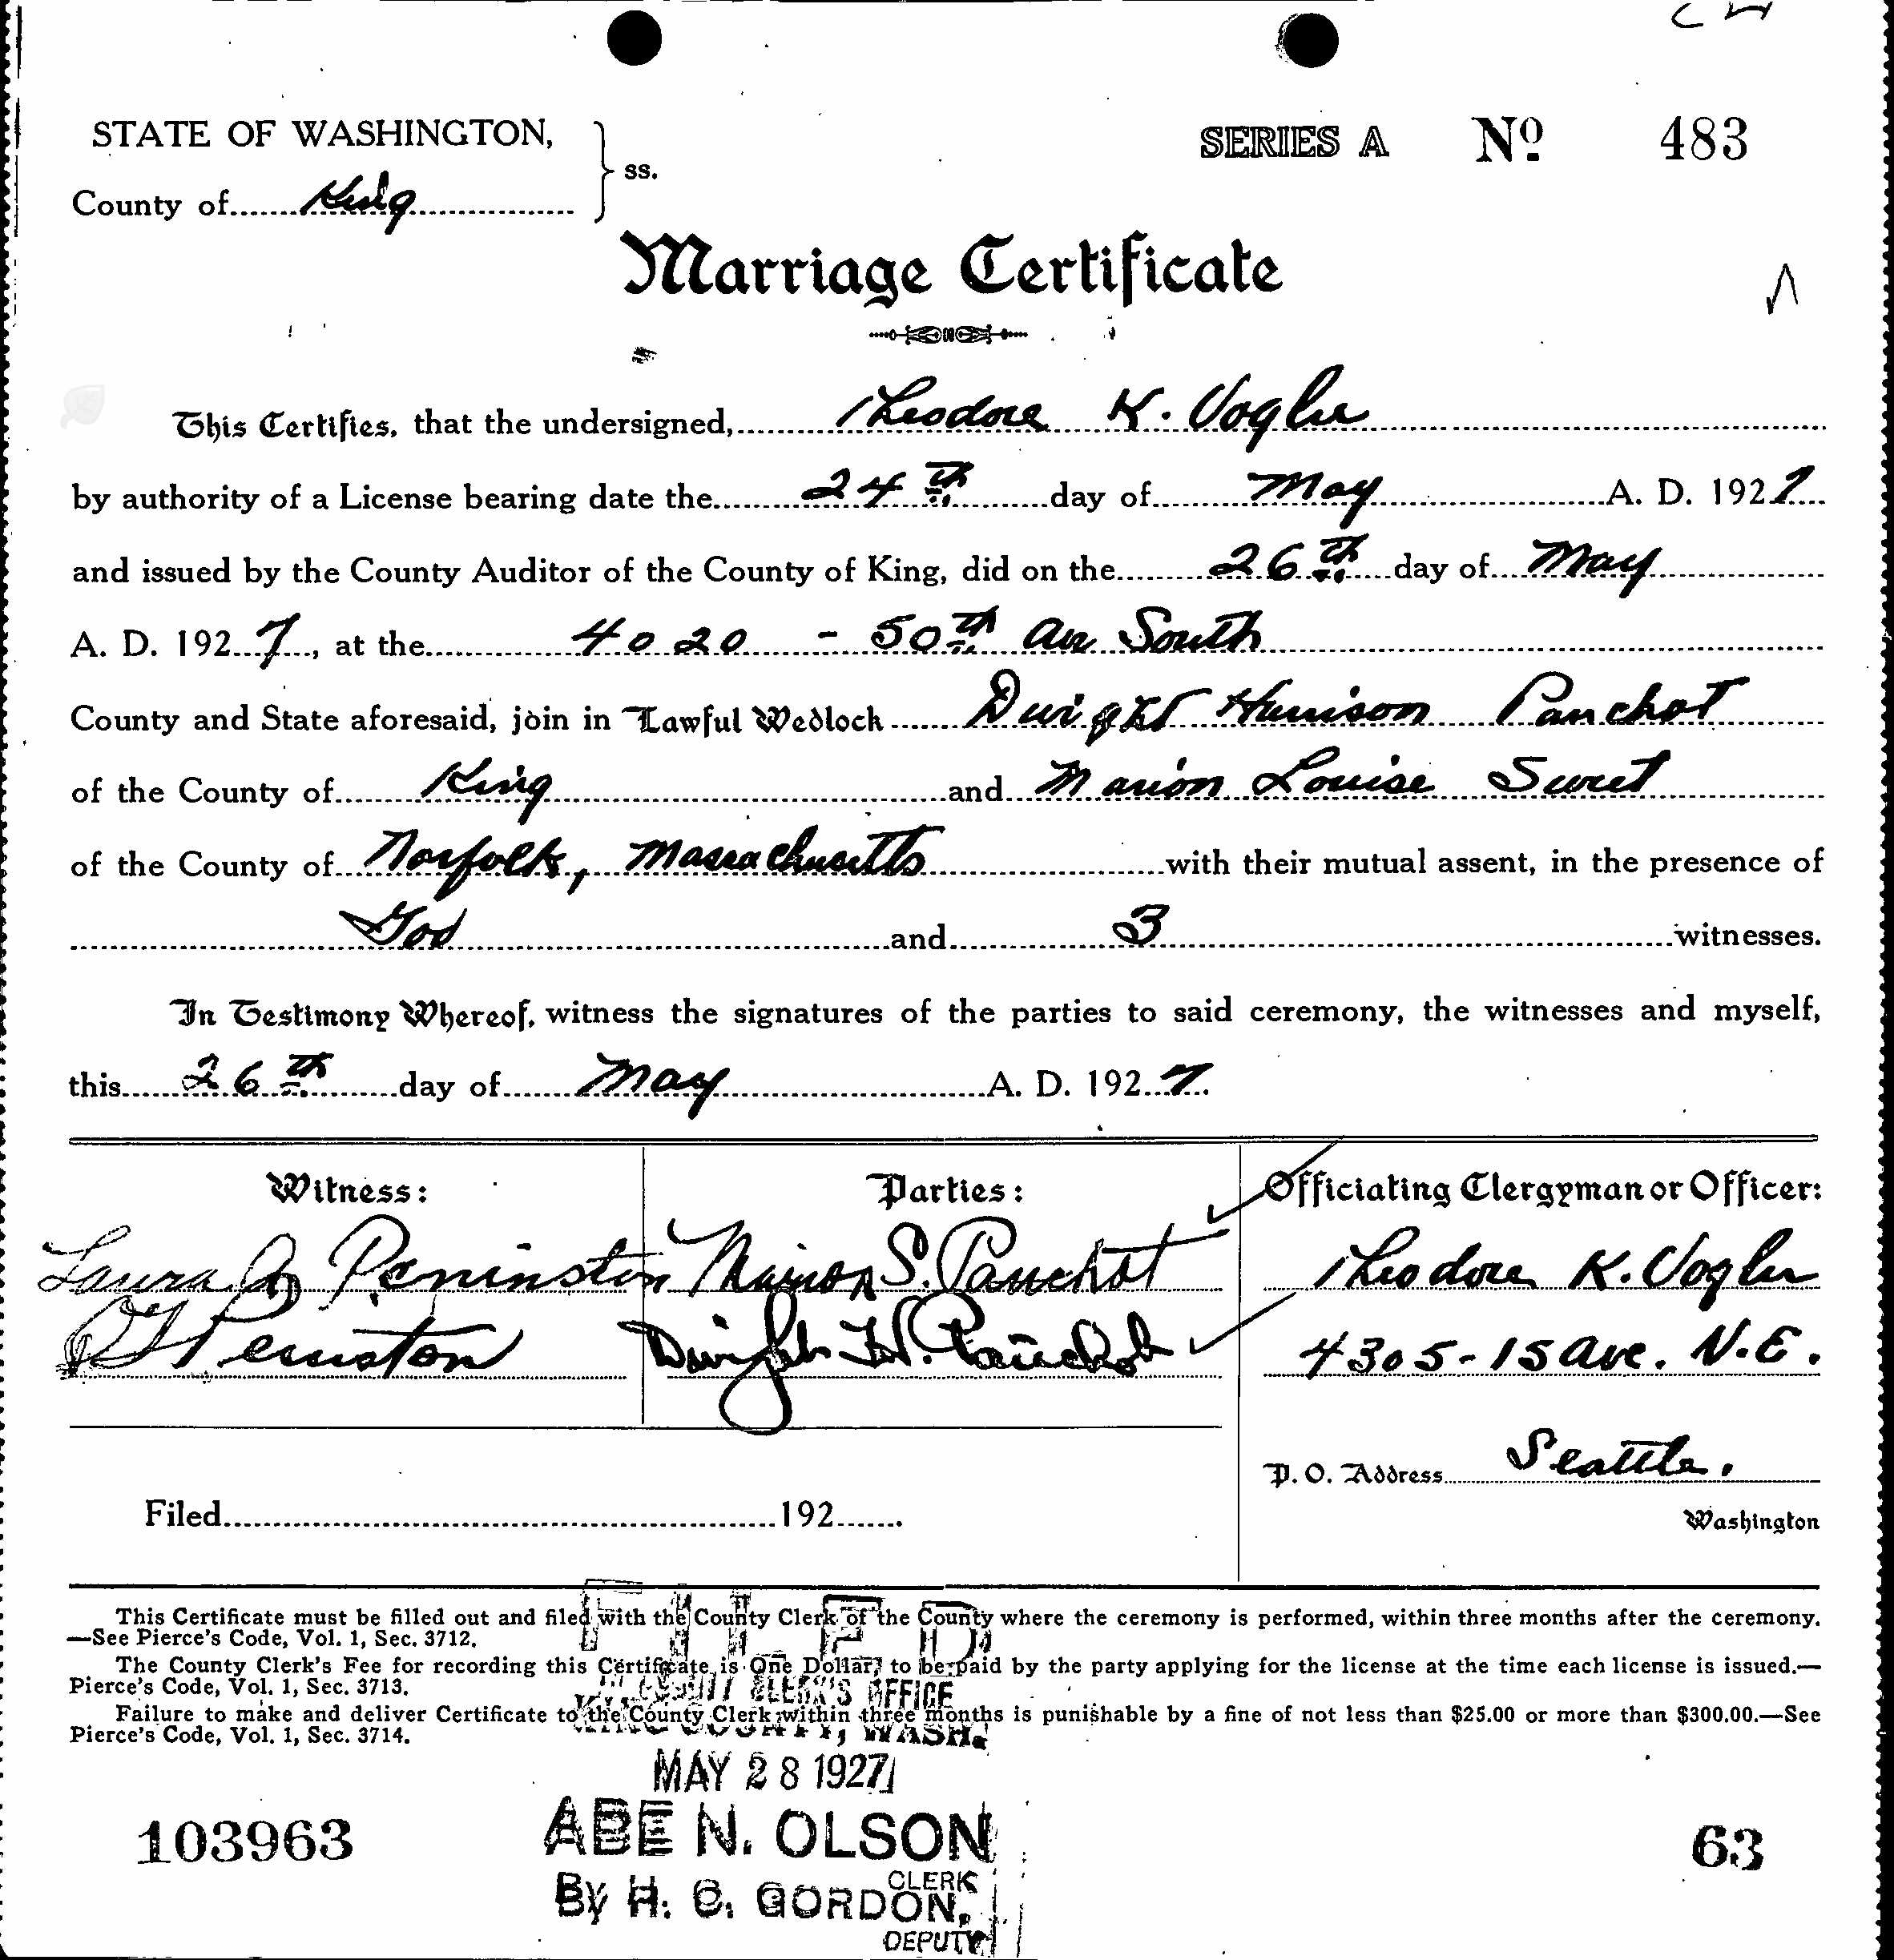 STATE OF WASHINGTON,
ss.
County of King
SERIES A No 483
Marriage Certificate
This Certifies, that the undersigned, Theodore K. Vogler
by authority of a License bearing date the 24th day of May A. D. 1927
and issued by the County Auditor of the County of King, did on the 26th day of May
A. D. 1927, at the 4020 - 50th Ave South
County and State aforesaid, join in Lawful Wedlock Dwight Harrison Panchot
of the County of King and Marion Louise Sweet
of the County of Norfolk, Massachusetts with their mutual assent, in the presence of
God and 3 witnesses.
In Testimony Whereof, witness the signatures of the parties to said ceremony, the witnesses and myself,
this 26th day of May A. D. 1927.
Witness: Parties: Officiating Clergyman or Officer:
Laura Peninston Marion S. Panchot Theodore K. Vogler
Peniston Dwight H. Panchot 4305-15 Ave. N.E.
P. O. Address Seattle.
Filed 192 .
Washington
This Certificate must be filled out and filed with the County Clerk of the County where the ceremony is performed, within three months after the ceremony.
—See Pierce's Code, Vol. 1, Sec. 3712.
The County Clerk's Fee for recording this Certificate, is One Dollar, to be paid by the party applying for the license at the time each license is issued.—
Pierce's Code, Vol. 1, Sec. 3713.
Failure to make and deliver Certificate to the County Clerk within three months is punishable by a fine of not less than $25.00 or more than $300.00.—See
Pierce's Code, Vol. 1, Sec. 3714.
FILED
CLERK'S OFFICE
KING COUNTY, WASH.
MAY 28 1927
103963 ABE N. OLSON 63
CLERK
By H. C. GORDON,
DEPUTY